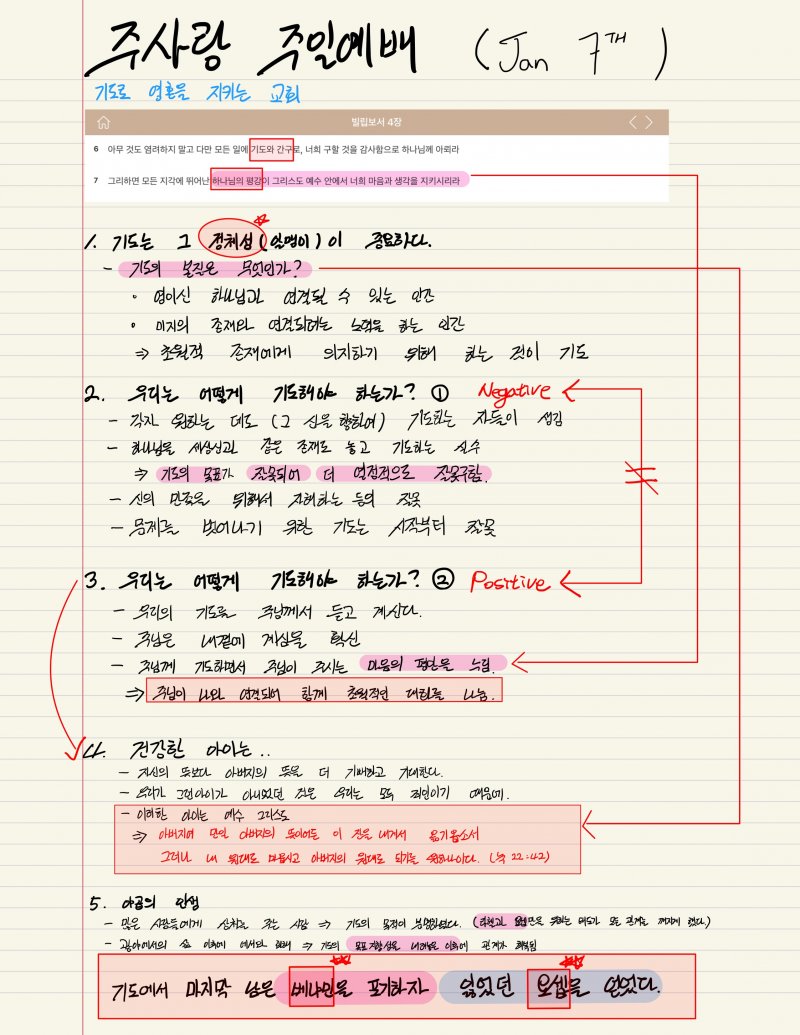 주사랑 주일예배 (Jan 7th)
기도로 영혼을 지키는 교회
빌립보서 4장
6 아무 것도 염려하지 말고 다만 모든 일에 기도와 간구로, 너희 구할 것을 감사함으로 하나님께 아뢰라
7 그리하면 모든 지각에 뛰어난 하나님의 평강이 그리스도 예수 안에서 너희 마음과 생각을 지키시리라
1. 기도는 그 정체성(일명이)이 중요하다.
- 기도의 본질은 무엇인가?
• 영이신 하나님과 연결될 수 있는 인간
• 미지의 존재와 연결되려는 노력을 하는 인간
⇒ 초월적 존재에게 의지하기 위해 하는 것이 기도
2. 우리는 어떻게 기도해야 하는가? ① Negative
- 각자 원하는 대로 (그 신을 향하여) 기도하는 자들이 생김
- 하나님을 세상신과 같은 존재로 놓고 기도하는 실수
⇒ 기도의 목표가 잘못되어 더 열정적으로 잘못구함.
- 신의 만족을 위해서 자해하는 등의 잘못
- 문제를 벗어나기 위한 기도는 시작부터 잘못
3. 우리는 어떻게 기도해야 하는가? ② Positive
- 우리의 기도를 주님께서 듣고 계신다.
- 주님은 내곁에 계심을 확신
- 주님께 기도하면서 주님이 주시는 마음의 평안을 느낌
⇒ 주님이 나와 연결되어 함께 초월적인 대화를 나눔.
4. 건강한 아이는..
- 자신의 뜻보다 아버지의 뜻을 더 기뻐하고 기대한다.
- 우리가 그런아이가 아니었던 것은 우리는 모두 죄인이기 때문에.
- 이러한 아이는 예수 그리스도
⇒ 아버지여 만일 아버지의 뜻이어든 이 잔을 내게서 옮기옵소서
그러나 내 원대로 마옵시고 아버지의 원대로 되기를 원하나이다. (눅 22:42)
5. 야곱의 인생
- 많은 사람들에게 상처를 주는 사람 ⇒ 기도의 목적이 불명확했다. (라헬과 요셉만을 위하는 태도가 모든 관계를 깨지게 했다)
- 광야에서의 삶 이후에 에서와 화해 ⇒ 기도의 목표 내려놓은 이후에 관계가 회복됨
기도에서 마지막 남은 베냐민을 포기하자 잃었던 요셉을 얻었다.